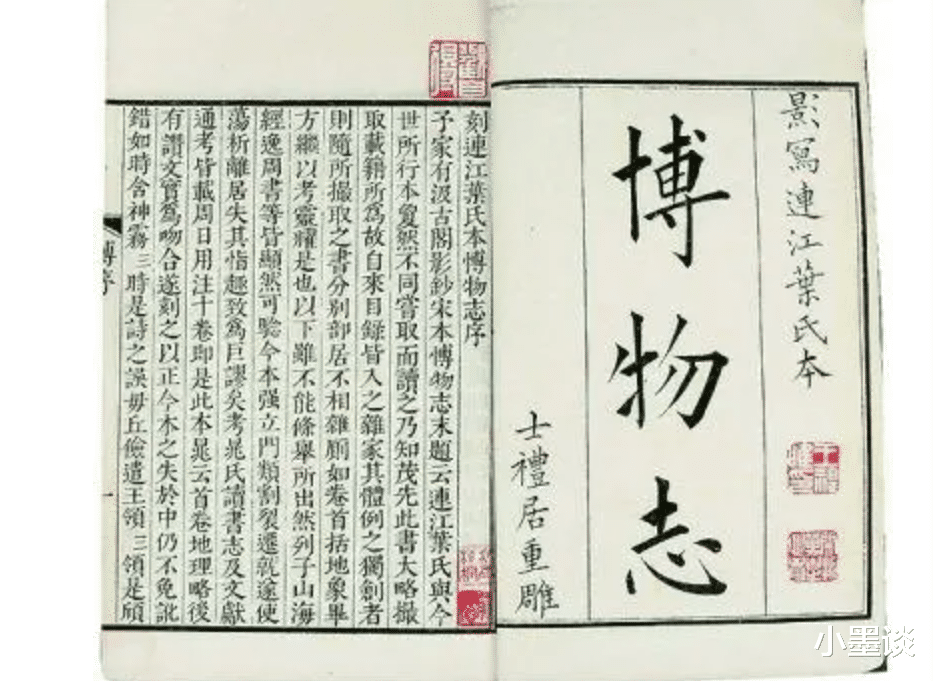 影寫連江葉氏本
博物志
士禮居重雕
刻連江葉氏本博物志序
予家有汲古閣影鈔宋本博物志末題云連江葉氏與今
世所行本敻然不同嘗取而讀之乃知茂先此書大略撮
取載籍所爲故自來目錄皆入之雜家其體例之獨創者
則隨所撮取之書分别部居不相雜厠如卷首括地象畢
方繼以考靈耀是也以下雖不能條舉所出然列子山海
經逸周書等皆顯然可驗今本强立門類割裂遷就遂使
蕩析離居失其恉趣致爲巨謬矣考晁氏讀書志及文獻
通考皆載周日用注十卷即是此本晁云首卷地理略後
有讚文實爲吻合遂刻之以正今本之失於中仍不免訛
錯如時含神霧三時是詩之誤毋丘儉遣王領三領是頎
博序
一
小墨谈